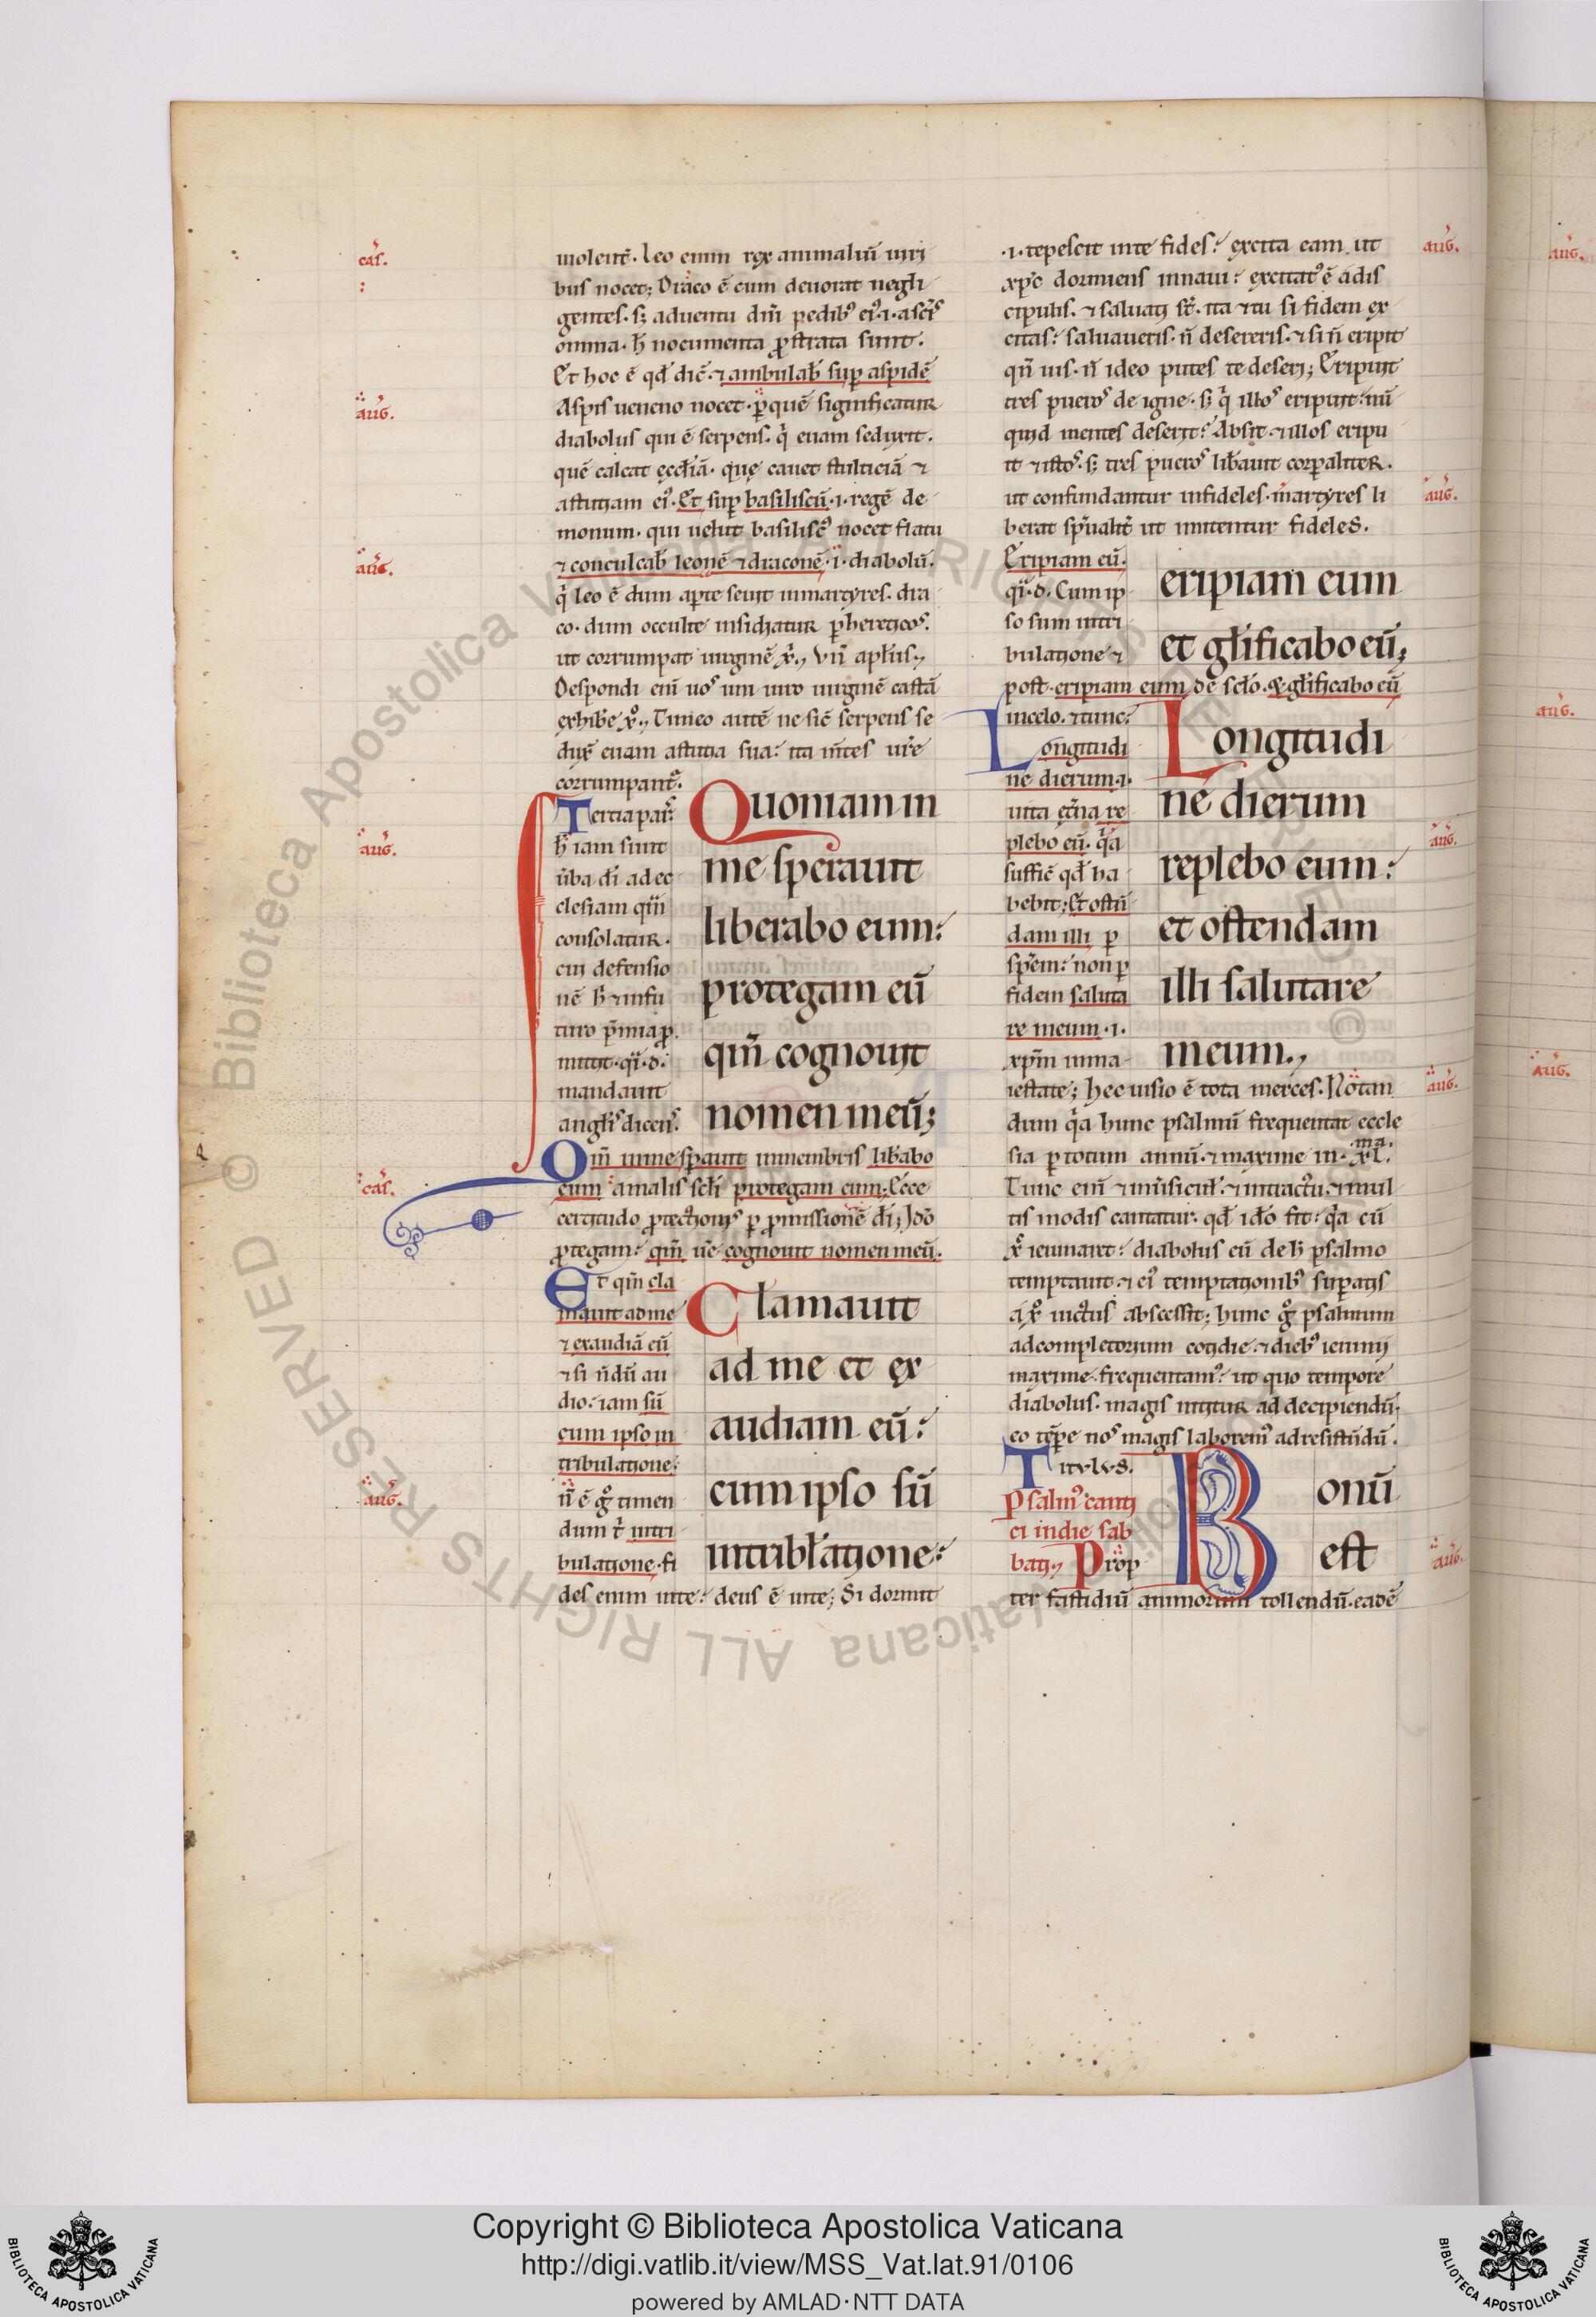 uiolentę̄. leo enim rex animaliū uiri
bus nocet; Draco ē cum deuorat negli
gentes. sꝫ aduentu dn̄i pedibꝰ eiꝰ .i. asc̄is
omnia. h̄ nocumenta ꝓstrata sunt.
Et hoc ē qd̄ dic̄. ⁊ ambulab̄ suꝑ aspidē
Aspis ueneno nocet. ꝑ quē significatur
diabolus qui ē serpens. q̇ euam seduxit.
quē calcat ęccl̄iā. quę cauet stulticiā ⁊
astutiam eiꝰ. Et suꝑ basiliscū .i. regē de
monum. qui uelut basiliscꝰ nocet flatu
⁊ conculcab̄ leonē ⁊ draconē .i. diabolū.
q̇ leo ē dum aꝑte seuit in martyres. dra
co. dum occulte insidiatur ꝑ hereticos.
ut corrumpat uirginē xp̄i, Vn̄ apl̄us,
Despondi eni uos uni uiro uirginē castā
exhibe xp̄o, Timeo autē ne sic̄ serpens se
dux̄ euam astutia sua: ita m̄tes ur̄e
corrumpant᷑.
Tercia pars.
h̄ iam sunt
ūba di ad ec
clesiam qm̄
consolatur.
cui defensio
nē h̄ ⁊ in fu
turo p̄mia ꝓ
mittit. qi. d.
mandauit
angl̄is dicens.
Quoniam in
me sperauit
liberabo eum:
protegam eū
qm̄ cognouit
nomen meū;
Qm̄ in me sperauit in membris lib̄abo
eum a malis sc̄li protegam eum. Ecce
certitudo ꝓtectionis ꝑ ꝓmissionē di; Ideo
ꝓtegam: qm̄ uē cognouit nomen meū.
Et qm̄ cla
mauit ad me
⁊ exaudiā eū
⁊ si n̄dū au
dio: iam sū
cum ipso in
tribulatione.
n̄ ē g̊ timen
dum t̄ in tri
bulatione. fi
des enim in te: deus ē in te; Si dormit
Clamauit
ad me et ex
audiam eū:
cum ipso sū
in tribl̄atione:
.i. tepescit in te fides: excita eam ut
xp̄c dormiens in naui: excitatꝰ ē a dis
cipulis. ⁊ saluati st̄. ita ⁊ tu si fidem ex
citas: saluaueris. n̄ desereris. ⁊ si n̄ eripit
qn̄ uis. n̄ ideo putes te deseri; Eripuit
tres pueros de igne. sꝫ q̇ illos eripuit: nū
quid mentes deserit? Absit. ⁊ illos eripu
it ⁊ istos. sꝫ tres pueros lib̄auit corꝑaliter.
ut confundantur infideles. martyres li
berat sp̄ualit̄ ut imitentur fideles.
Eripiam eū.
qi. d. Cum ip
so sum in tri
bulatione ⁊
eripiam eum
et gl̄ificabo eū;
post. eripiam eum de sc̄lo. ⁊ gl̄ificabo eū
in celo. ⁊ tunc:
Longitudi
ne dierum .i.
uita et̄na re
plebo eū. qa
suffic̄ qd̄ ha
bebit; Et ostē
dam illi ꝑ
sp̄em: non ꝑ
fidem saluta
re meum .i.
xp̄m in ma
Longitudi
ne dierum
replebo eum:
et ostendam
illi salutare
meum.,
iestate; hec uisio ē tota merces. Notan
dum qa hunc psalmū frequentat eccle
sia ꝑ totum annū. ⁊ maxime in. xl.ma.
Tunc eni ⁊ in ūsicul. ⁊ in tractu. ⁊ mul
tis modis cantatur. qd̄ ideo fit: qa cū
xp̄s ieiunaret: diabolus eū de h̄ psalmo
temptauit. ⁊ eiꝰ temptationibꝰ suꝑatis
a xp̄o uictus abscessit; hunc g̊ psalmum
ad completorium cotidie. ⁊ diebꝰ ieiunii
maxime. frequentamꝰ. ut quo tempore
diabolus. magis nititur ad decipiendū.
eo tēpe nos magis laboremꝰ ad resistendū.
Titvlvs.
Psalmꝰ canti
ci in die sab
bati, Prop
ter fastidiū animorum tollendū. eadē
Bonū
est
cas.
:
aug.
aug.
aug.
cas.
aug.
aug.
aug.
aug.
aug.
aug.
aug.
aug.
aug.
Copyright © Biblioteca Apostolica Vaticana
http://digi.vatlib.it/view/MSS_Vat.lat.91/0106
powered by AMLAD·NTT DATA
BIBLIOTECA APOSTOLICA VATICANA
BIBLIOTECA APOSTOLICA VATICANA